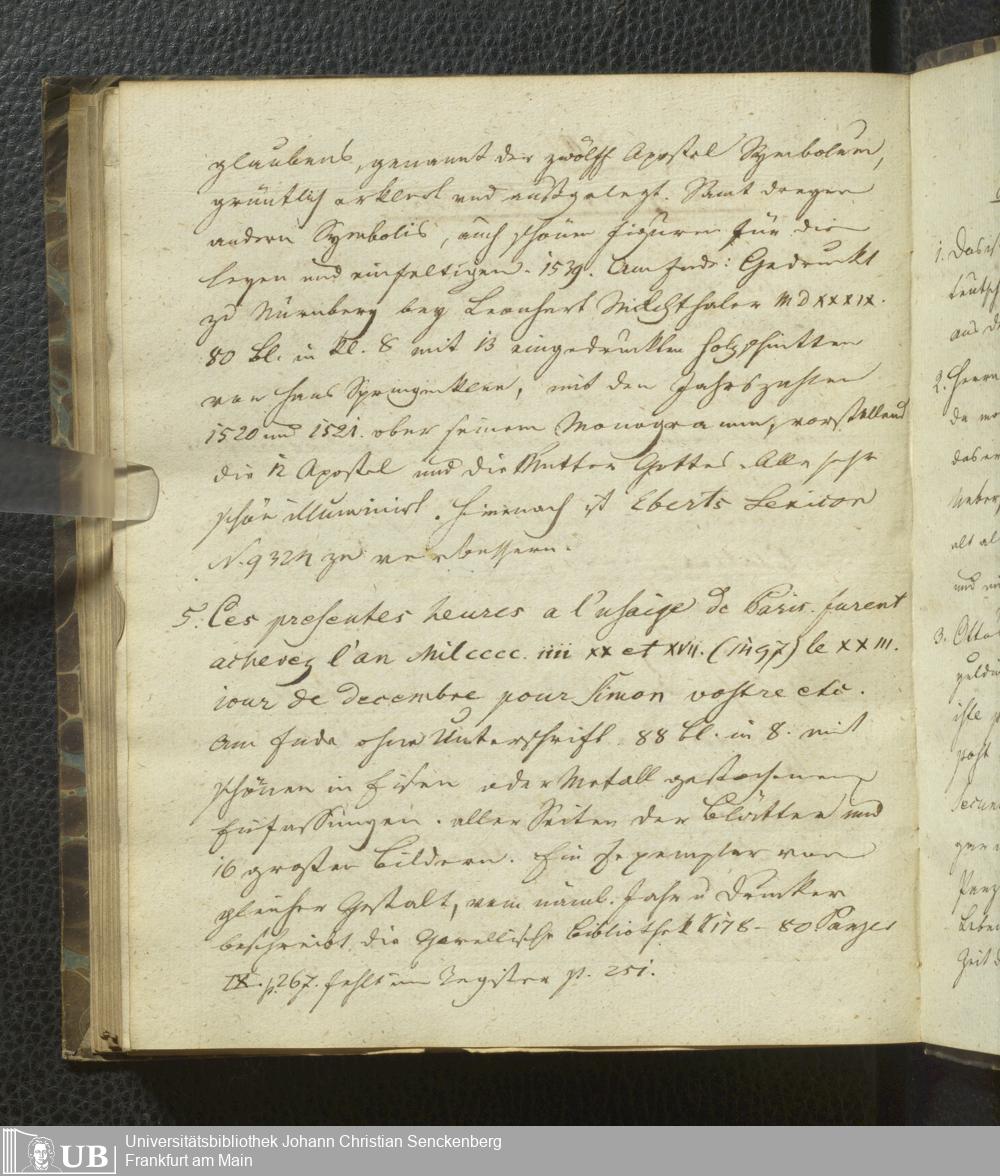 glaubens, genannt der zwölff Apostel Symbolum,
gründtlich erklert und außgelegt. Samt dreyen
andern Symbolis, auch schönen figuren für die
leyen und einfeltigen. 1539. Am Ende: Gedruckt
zu Nürnberg bey Leonhart Milchthaler MDXXXIX.
80 Bl. in kl. 8 mit 13 eingedruckten Holzschnitten
von Hans Springinklee, mit den Jahrszahlen
1520 und 1521. ober seinem Monogramm, vorstellend
die 12 Apostel und die Mutter Gottes. Alle sehr
schön illuminirt. Hienach ist Eberts Lexicon
N. 9324 zu verbessern.
5. Ces presentes heures a l'usaige de Paris. furent
achevez l'an Mil cccc. iiii xx et xvii. (1497) le XXIII.
iour de decembre pour Simon vostre etc.
Am Ende ohne Unterschrift. 88 Bl. in 8. mit
schönen in Eisen oder Metall gestochenen
Einfassungen. aller Seiten der Blätter und
16 grossen Bildern. Ein Exemplar von
gleicher Gestalt, vom näml. Jahr u Drucker
beschreibt die Garellische Bibliothek S 178 - 80 Panzer
IX. p. 267. fehlt im Register p. 251.
1. Das
teutsch
aus
2. Herrn
da
das
alt al
und
3. Otto
guldn
iste
post
secun
Panz
Leben
Zeit
UB
Universitätsbibliothek Johann Christian Senckenberg
Frankfurt am Main